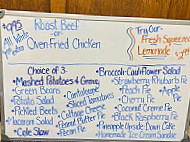 $9.95
All White Meat
Roast Beef
or
Oven-Fried Chicken
Try Our
Fresh Squeezed
Lemonade
Choice of 3
• Mashed Potatoes & Gravy
• Green Beans
• Potato Salad
• Pickled Beets
• Macaroni Salad
• Cole Slaw
• Cantaloupe
• Sliced Tomatoes
• Cottage Cheese
• Peanut Butter Pie
• Pecan Pie
• Broccoli-Cauliflower Salad
• Strawberry Rhubarb Pie
• Peach Pie
• Apple Pie
• Cherry Pie
• Coconut Creme Pie
• Black Raspberry Pie
• Pineapple Upside Down Cake
• Homemade Ice Cream Sundae